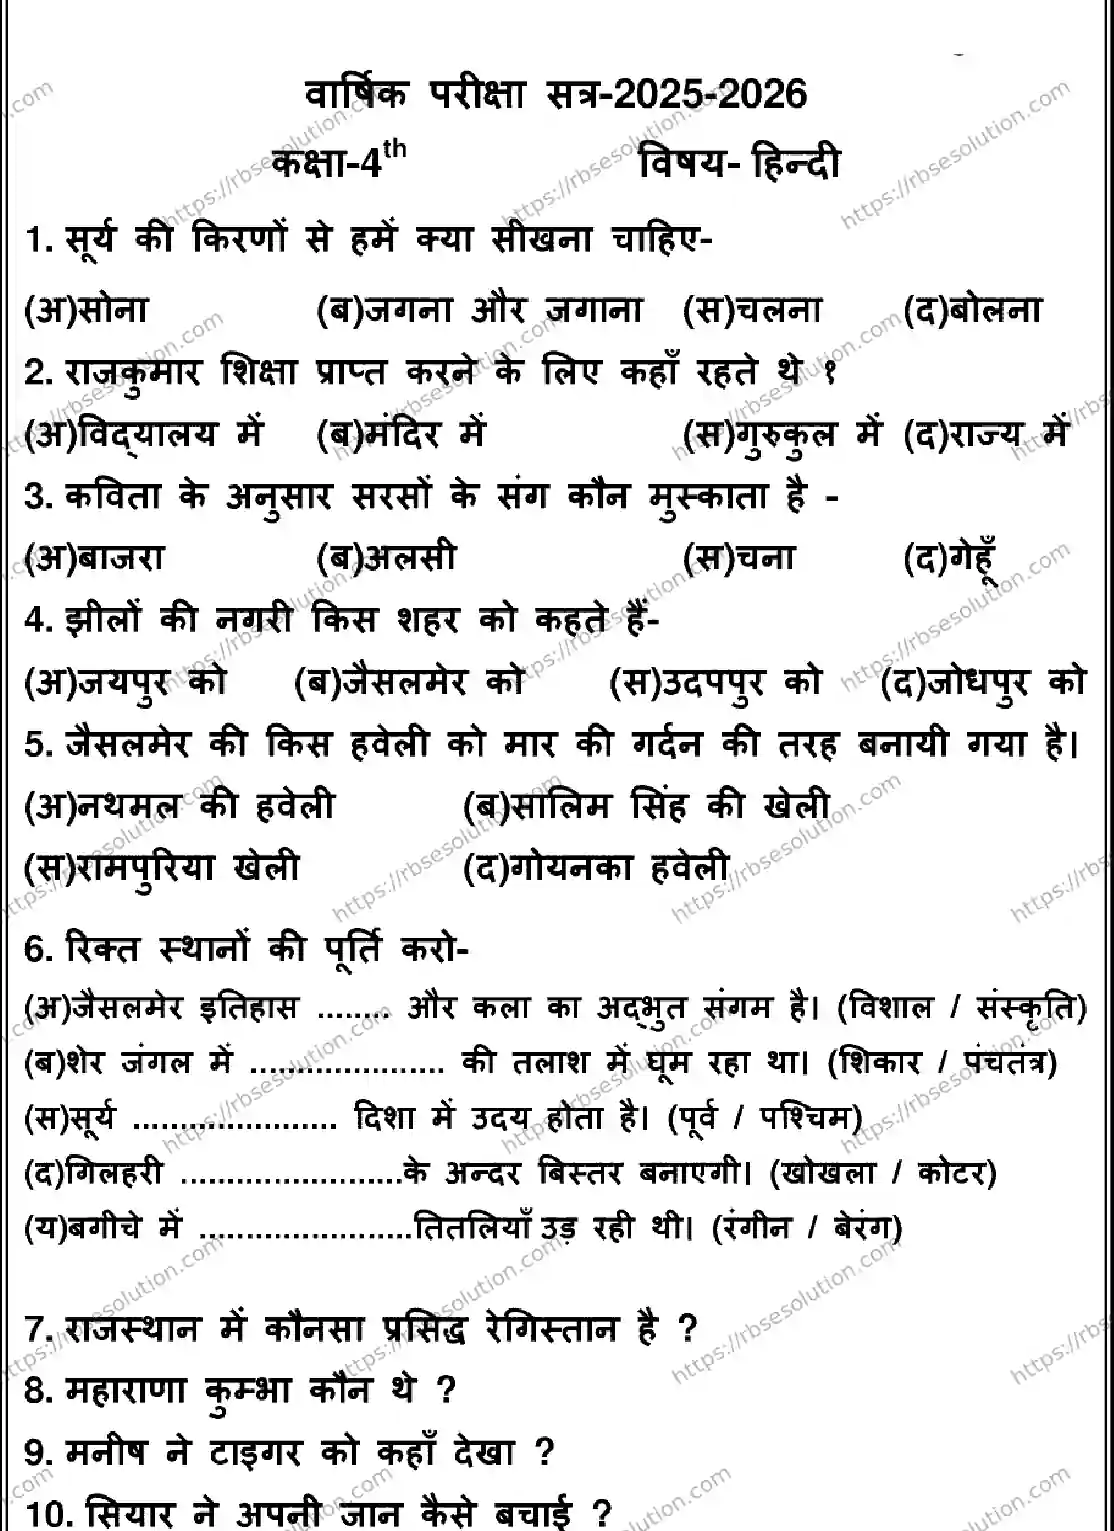 वार्षिक परीक्षा सत्र-2025-2026
कक्षा-4th विषय- हिन्दी
1. सूर्य की किरणों से हमें क्या सीखना चाहिए-
(अ)सोना (ब)जगना और जगाना (स)चलना (द)बोलना
2. राजकुमार शिक्षा प्राप्त करने के लिए कहाँ रहते थे १
(अ)विद्यालय में (ब)मंदिर में (स)गुरुकुल में (द)राज्य में
3. कविता के अनुसार सरसों के संग कौन मुस्काता है -
(अ)बाजरा (ब)अलसी (स)चना (द)गेहूँ
4. झीलों की नगरी किस शहर को कहते हैं-
(अ)जयपुर को (ब)जैसलमेर को (स)उदपपुर को (द)जोधपुर को
5. जैसलमेर की किस हवेली को मार की गर्दन की तरह बनायी गया है।
(अ)नथमल की हवेली (ब)सालिम सिंह की खेली
(स)रामपुरिया खेली (द)गोयनका हवेली
6. रिक्त स्थानों की पूर्ति करो-
(अ)जैसलमेर इतिहास ........ और कला का अद्भुत संगम है। (विशाल / संस्कृति)
(ब)शेर जंगल में ..................... की तलाश में घूम रहा था। (शिकार / पंचतंत्र)
(स)सूर्य ...................... दिशा में उदय होता है। (पूर्व / पश्चिम)
(द)गिलहरी ........................के अन्दर बिस्तर बनाएगी। (खोखला / कोटर)
(य)बगीचे में .......................तितलियाँ उड़ रही थी। (रंगीन / बेरंग)
7. राजस्थान में कौनसा प्रसिद्ध रेगिस्तान है ?
8. महाराणा कुम्भा कौन थे ?
9. मनीष ने टाइगर को कहाँ देखा ?
10. सियार ने अपनी जान कैसे बचाई ?
https://rbsesolution.com